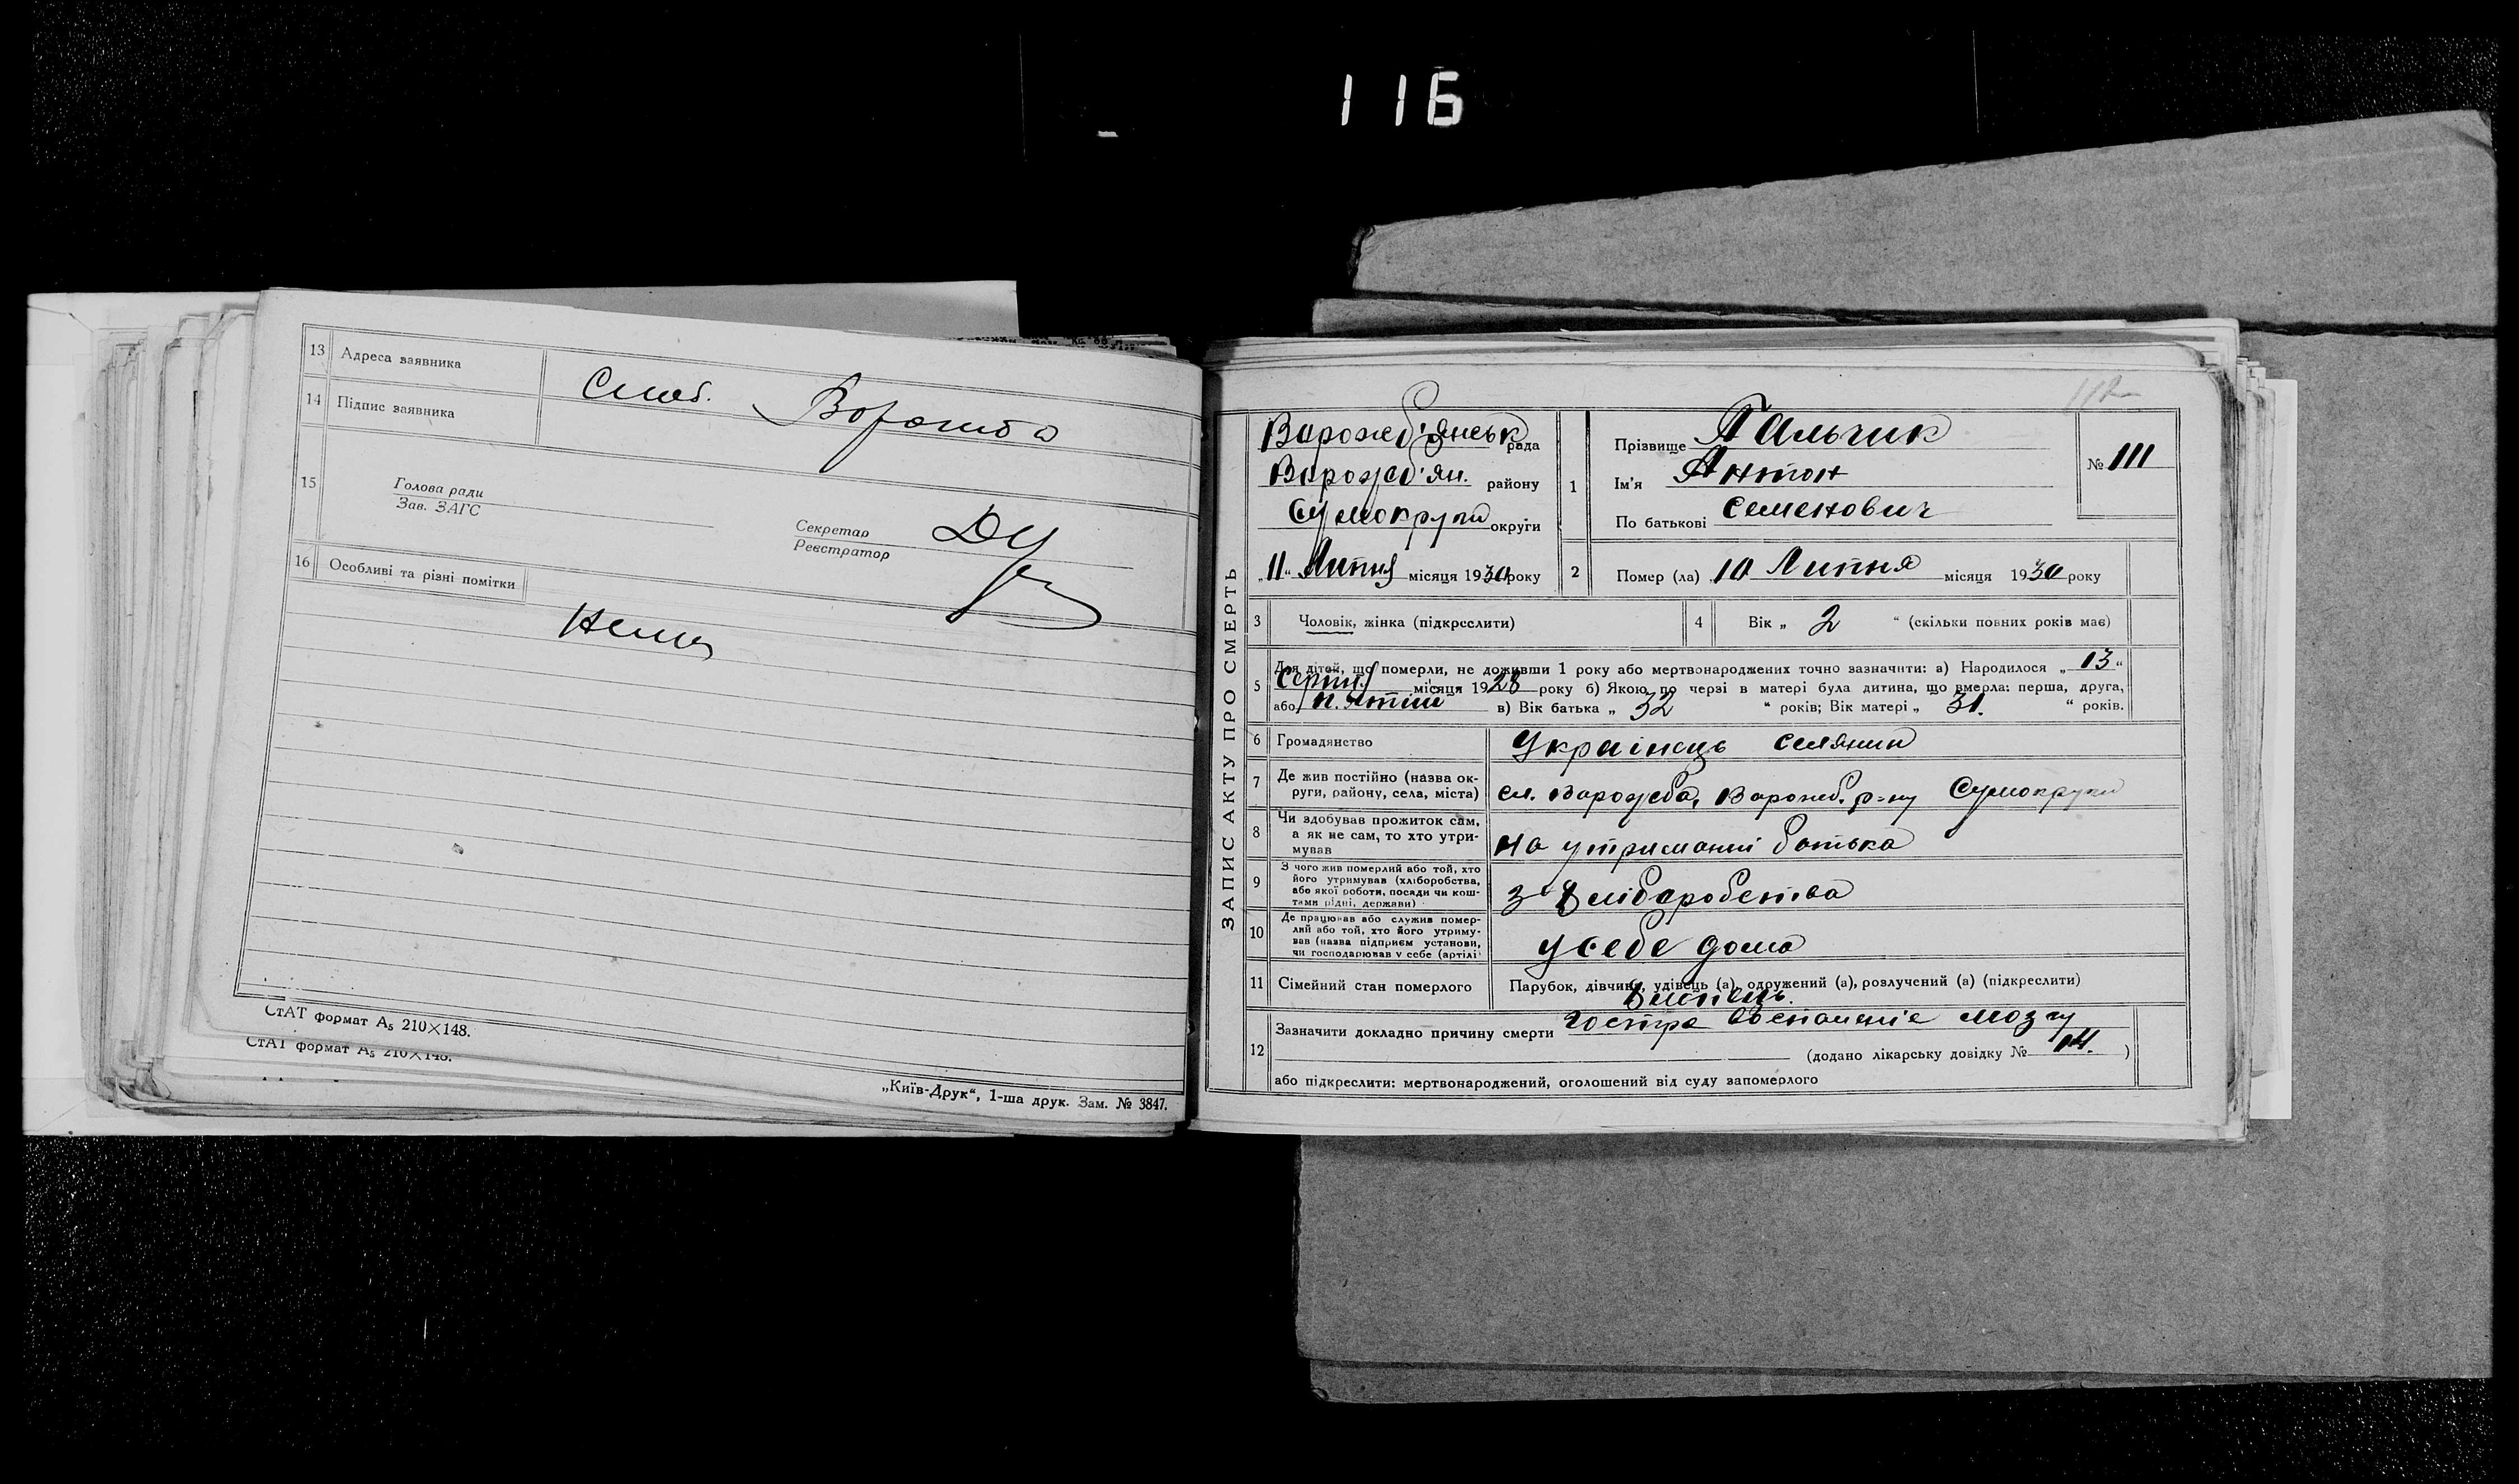 116
13 Адреса заявника
Слоб. Ворожба
14 Підпис заявника
15 Голова ради
Зав. ЗАГС
Секретар
Реєстратор
16 Особливі та різні помітки
Нема
СтАТ формат А5 210×148.
СтАТ формат А5 210×148.
„Київ-Друк“, 1-ша друк. Зам. № 3847.
ЗАПИС АКТУ ПРО СМЕРТЬ
Ворожеб'янськ рада
Ворожб'ян. району
Сумокруги округи
„11“ Липня місяця 1930 року
1 Прізвище Пальчик
Ім'я Антон
По батькові Семенович
№ 111
2 Помер (ла) 10 Липня місяця 1930 року
3 Чоловік, жінка (підкреслити)
4 Вік „ 2 “ (скільки повних років має)
5 Для дітей, що померли, не доживши 1 року або мертвонароджених точно зазначити: а) Народилося „ 13 “
Серпн. місяця 1928 року б) Якою по черзі в матері була дитина, що вмерла: перша, друга,
або п'ятій в) Вік батька „ 32 “ років; Вік матері „ 31. “ років.
6 Громадянство Українець селянин
7 Де жив постійно (назва ок-
руги, району, села, міста) сл. Ворожба, Ворожб. р-ну Сумокруги
8 Чи здобував прожиток сам,
а як не сам, то хто утри-
мував на утриманні батька
9 З чого жив померлий або той, хто
його утримував (хліборобства,
або якої роботи, посади чи кош-
тами рідні, держави) з Хліборобства
10 Де працював або служив помер-
лий або той, хто його утриму-
вав (назва підприєм установи,
чи господарював у себе (артілі) у себе дома
11 Сімейний стан померлого Парубок, дівчина, удівець (а), одружений (а), розлучений (а) (підкреслити)
Хлопець.
12 Зазначити докладно причину смерти Гостре воспаленіе мозгу
(додано лікарську довідку № 14. )
або підкреслити: мертвонароджений, оголошений від суду запомерлого